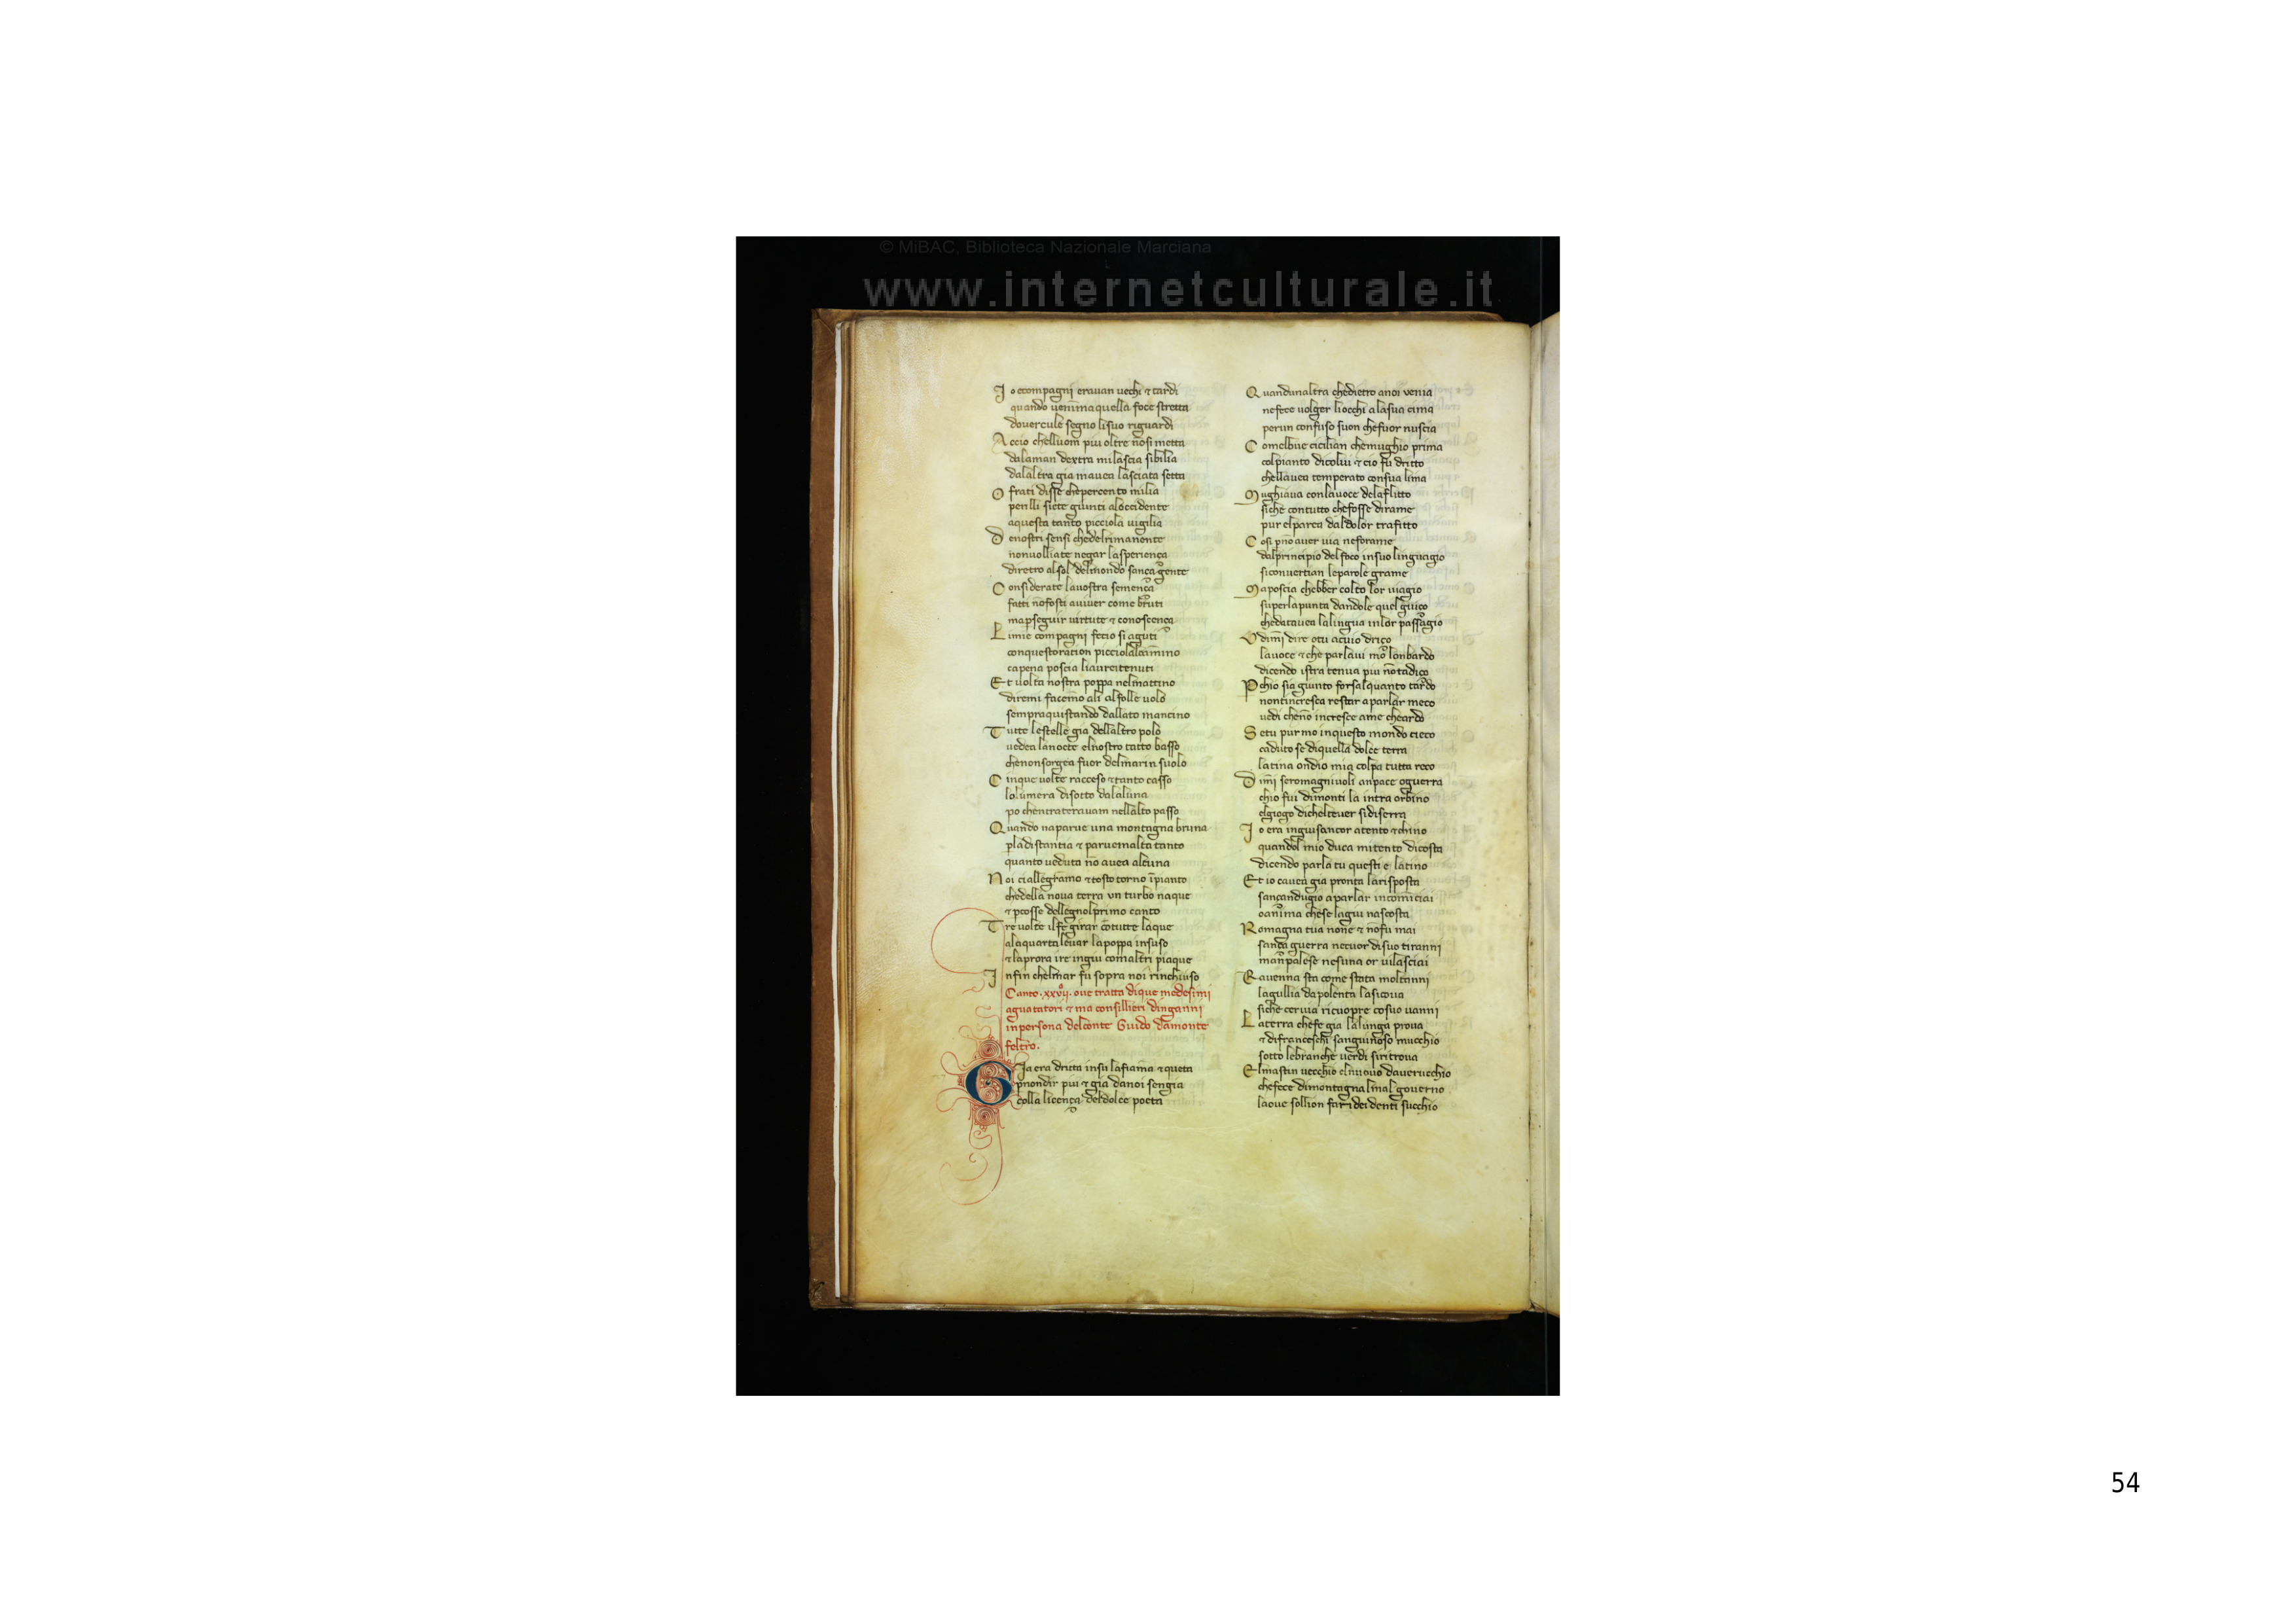 © MiBAC, Biblioteca Nazionale Marciana
www.internetculturale.it
Io ecompagni erauan uechi ⁊ tardi
quando uenima quella foce stretta
douercule segno lisuo riguardi
Accio chelluom piu oltre nō si metta
dalaman dextra mi lascia sibilia
dalaltra gia mauea lasciata setta
O frati disse chepercento milia
perilli siete giunti aloccidente
aquesta tanto picciola uigilia
Denostri sensi chedelrimanente
nonuolliate negar lasperiença
diretro alsol delmondo sança gente
Considerate lauostra semença
fatti nōfosti auiuer come bruti
mapseguir uirtute ⁊ conoscença
Limie compagni fecio si aguti
conquestoracion picciolalcamino
capena poscia liaureitenuti
Et uolta nostra poppa nelmattino
diremi facemo ali alfolle uolo
sempraquistando dallato mancino
Tutte lestelle gia dellaltro polo
uedea lanocte elnostro tatto basso
chenonsorgea fuor delmarin suolo
Cinque uolte racceso ⁊tanto casso
lolumera disotto dalaluna
po chentraterauam nellalto passo
Quando naparue una montagna bruna
pladistantia ⁊ paruemalta tanto
quanto ueduta nō auea alcuna
Noi ciallegramo ⁊tosto torno īpianto
chedella noua terra vn turbo naque
⁊ pcosse dellegnolprimo canto
Tre uolte ilfe girar cōtutte laque
alaquarta leuar lapoppa insuso
⁊laprora ire ingiu comaltri piaque
Infin chelmar fu sopra noi rinchiuso
Canto .xxvij. oue tratta dique medesimi
aguatatori ⁊ ma consillieri dinganni
inpersona delconte Guido damonte
feltro.
Gia era dritta insu lafiama ⁊queta
pnondir piu ⁊ gia danoi sengia
colla licença deldolce poeta
Quandunaltra chedietro anoi venia
nefece uolger liocchi alasua cima
perun confuso suon chefuor nuscia
Comelbue cicilian chemughio prima
colpianto dicolui ⁊ cio fu dritto
chellauea temperato consua lima
Mughiaua conlauoce delaflitto
siche contutto chefosse dirame
pur elparea daldolor trafitto
Cosi pnō auer uia neforame
dalprincipio delfoco insuo linguagio
siconuertian leparole grame
Maposcia chebber colto lor uiagio
superlapunta dandole quel guiço
chedatauea lalingua inlor passagio
Vdimi dire otu acuio driço
lauoce ⁊ che parlaui mo lonbardo
dicendo istra tenua piu nō tadiço
Pchio sia giunto forsalquanto tardo
nontincresca restar aparlar meco
uedi chenō incresce ame cheardo
Setu purmo inquesto mondo cieco
caduto se diquella dolce terra
latina ondio mia colpa tutta reco
Dimi seromagniuoli anpace oguerra
chio fui dimonti la intra orbino
elgiogo dicheltever sidiserra
Io era ingiusancor atento ⁊chino
quandol mio duca mitento dicosta
dicendo parla tu questi e latino
Et io cauea gia pronta larisposta
sançandugio aparlar incominciai
oanima chese lagiu nascosta
Romagna tua none ⁊ nofu mai
sança guerra necuor disuo tiranni
manpalese nesuna or uilasciai
Rauenna sta come stata moltanni
lagullia dapolenta lasicoua
siche ceruia ricuopre cosuo uanni
Laterra chefe gia lalunga proua
⁊ difranceschi sanguinoso mucchio
sotto lebranche uerdi siritroua
Elmastin uecchio elnuouo dauerucchio
chefece dimontagna lmal gouerno
laoue sollion fan dei denti succhio
54